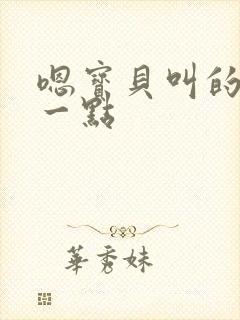 嗯寶貝叫的
一點
華秀妹